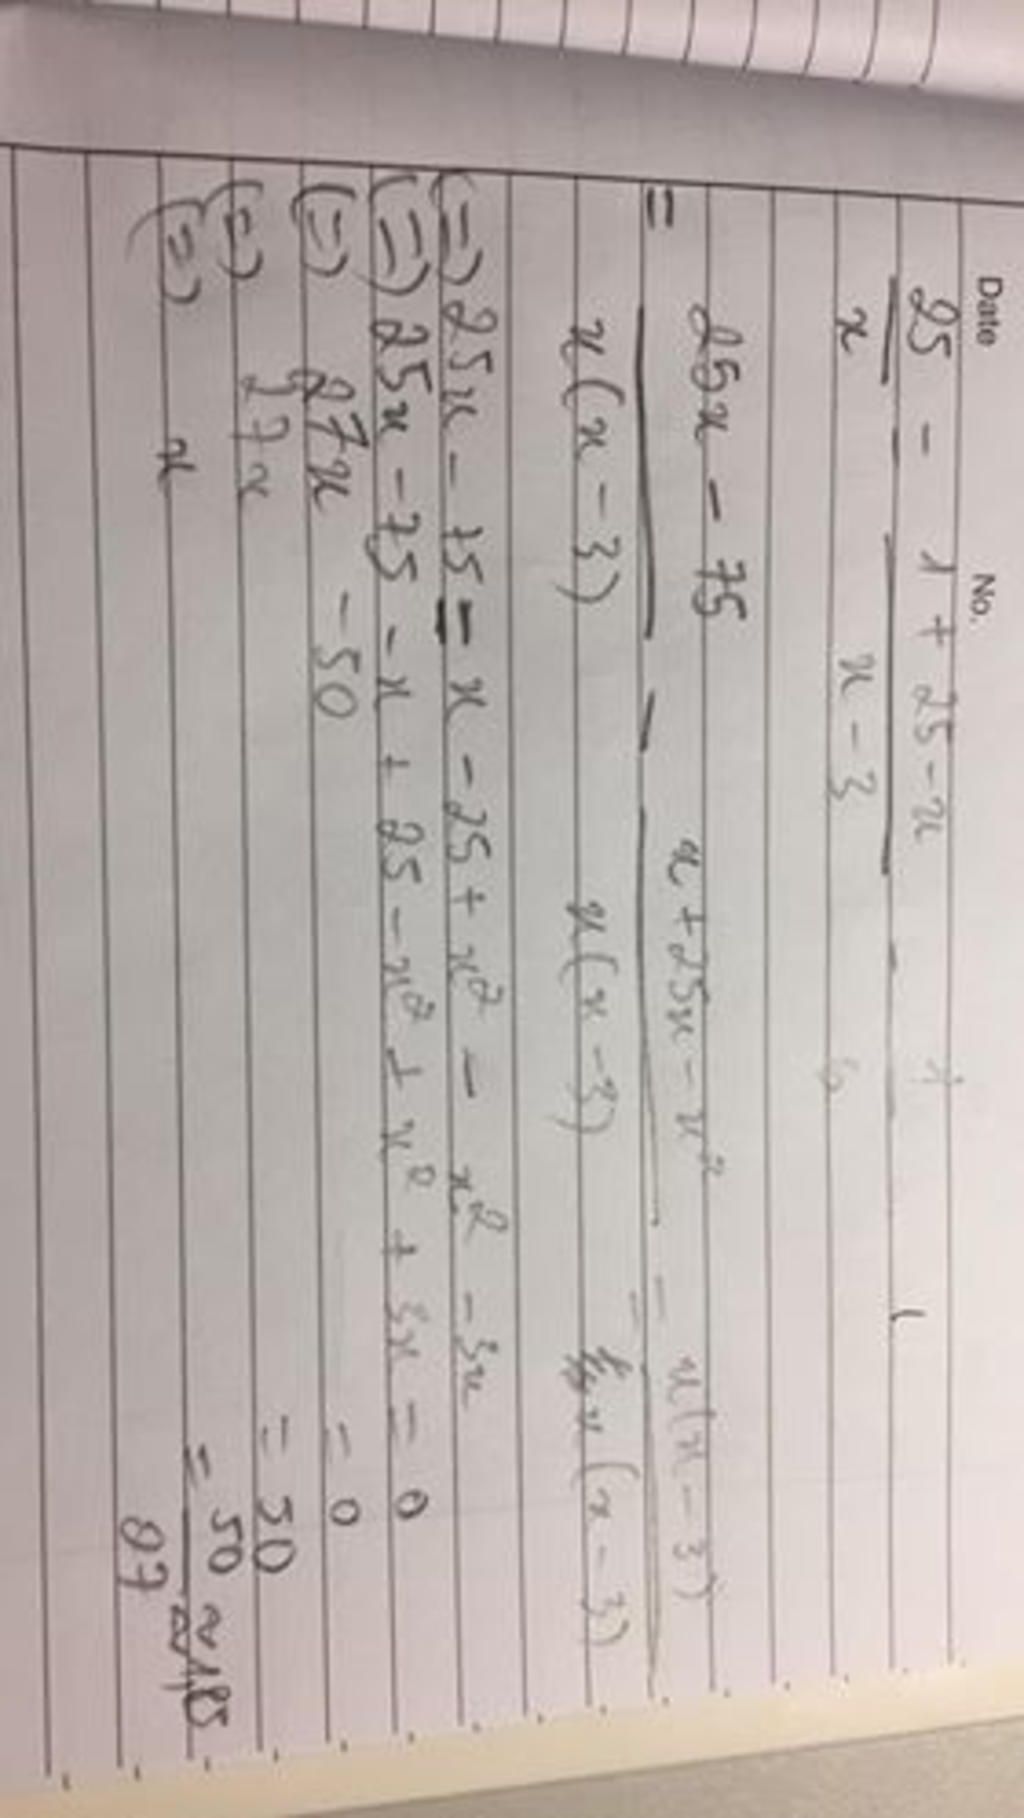 Date No.
25 - 1 + 25 - x - 1
x x - 3
25x - 75 - x + 25x - x² - x(x - 3)
= x(x - 3) x(x - 3) x(x - 3)
(=) 25x - 75 = x - 25 + x² - x² - 3x
(=) 25x - 75 - x + 25 - x² + x² + 3x = 0
(=) 27x - 50 = 0
(=) 27x = 50
(=) x = 50 ≈ 1,85
27